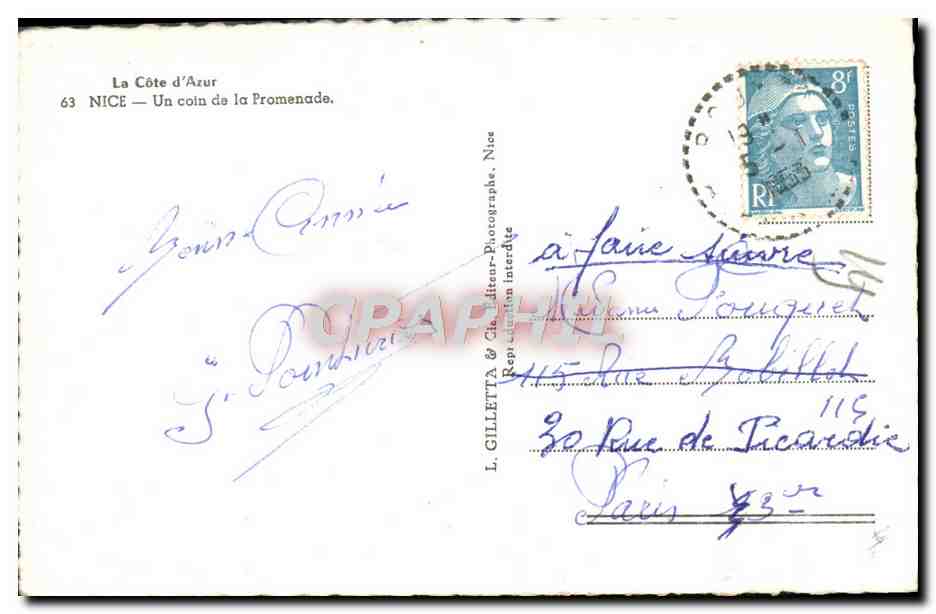 La Côte d'Azur
63 NICE — Un coin de la Promenade.
Bonne Année
L. GILLETTA & Cie, Editeur-Photographe, Nice
Reproduction interdite
8f
POSTES
RF
18 H
5 - 1
1953
à faire suivre
Madame Fouquet
115 Rue Bobillot
115
30 Rue de Picardie
Paris
CPAPHIL